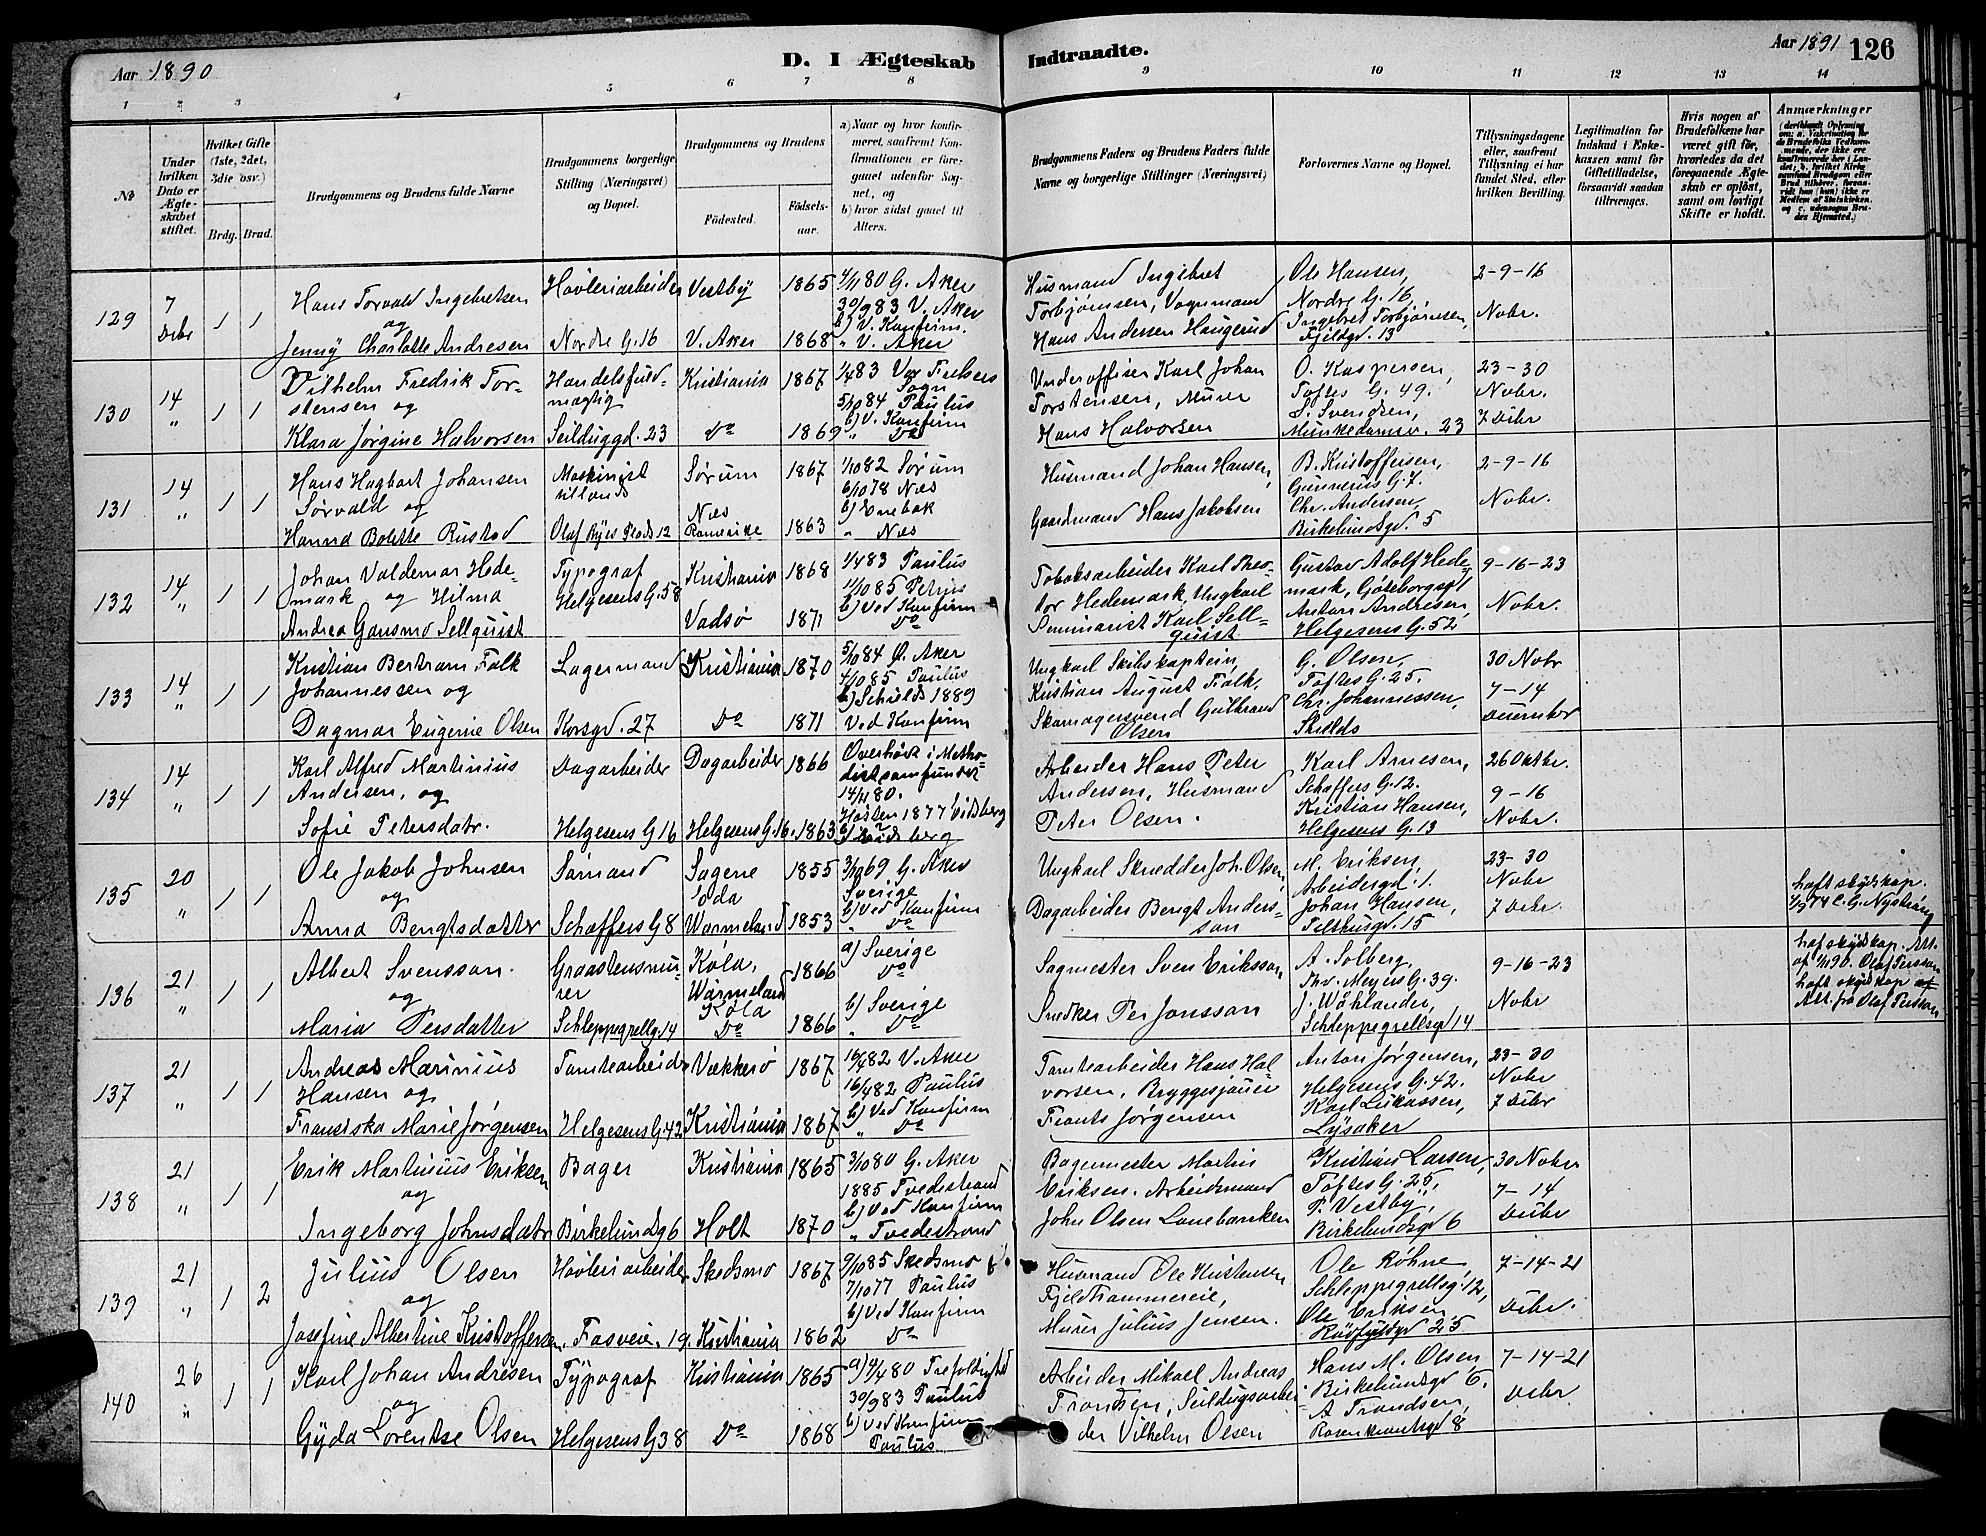 Aar 1890
D. I Ægteskab
Indtraadte.
Aar 1891 126
1 2 3 4 5 6 7 8 9 10 11 12 13 14
No
Under hvilken Dato er Ægteskabet stiftet.
Hvilket Gifte (1ste, 2det, 3die osv.)
Brdg. Brud.
Brudgommens og Brudens fulde Navne
Brudgommens borgerlige Stilling (Næringsvei) og Bopæl.
Brudgommens og Brudens
Fødested.
Fødselsaar.
a) Naar og hvor konfirmeret, saafremt Konfirmationen er foregaaet udenfor Sognet, og
b) hvor sidst gaaet til Alters.
Brudgommens Faders og Brudens Faders fulde Navne og borgerlige Stillinger (Næringsvei)
Forlovernes Navne og Bopæl.
Tillysningsdagene eller, saafremt Tillysning ei har fundet Sted, efter hvilken Bevilling.
Legitimation for Indskud i Enkekassen samt for Giftetilladelse, forsaavidt saadan tiltrænges.
Hvis nogen af Brudefolkene har været gift før, hvorledes da det foregaaende Ægteskab er opløst, samt om lovligt Skifte er holdt.
Anmærkninger
129 7 Debr 1 1
Hans Torvald Ingebretsen
og
Jenny Charlotte Andresen
Høvleriarbeider
Nordre G. 16
Vestby 1865
V. Aker 1868
4/1180 G. Aker
30/983 V. Aker
b) V. Konfirm.
" V. Aker
Husmand Ingebret
Torbjørnsen, Vognmand
Hans Andersen Haugerud
Ole Hansen,
Nordre G. 16,
Ingebret Torbjørnsen,
Fjeldgd. 13
2-9-16
Nobr.
130 14 " 1 1
Vilhelm Fredrik Tor-
stensen og
Klara Jørgine Halvorsen
Handelsfuld-
mægtig
Seilduggd. 23
Kristiania 1867
do 1869
1/483 Vor Frelsers
Sogn
5/1084 Paulus
b) V. Konfirm
" do
Underoffiser Karl Johan
Torstensen, Murer
Hans Halvorsen
O. Kaspersen,
Toftes G. 49.
S. Svendsen,
Munkedamsv. 23
23-30
Nobr.
7 Debr
131 14 " 1 1
Hans Hagbart Johansen
Sørvald og
Hanna Bolette Rustad
Olaf Ryes Plads 12
Sørum 1867
Næs
Romerike 1863
1/1082 Sørum
6/1078 Næs
b) Enebak
" Næs
Husmand Johan Hansen,
Gaardmand Hans Jakobsen
B. Kristoffersen,
Gunnerus G. 7.
Chr. Andersen,
Birkelundsgd. 5
2-9-16
Nobr.
132 14 " 1 1
Johan Valdemar Hede-
mark og Hilma
Andrea Gansmo Sellquist
Typograf
Helgesens G. 58
Kristiania 1868
Vadsø 1871
1/483 Paulus
11/1085 Petrus
b) Ved Konfirm
do
Tobaksarbeider Karl Theo-
dor Hedemark, Ungkarl
Seminarist Karl Sell-
quist
Gustav Adolf Hede-
mark, Göteborggd
Anton Andresen,
Helgesens G. 52
9-16-23
Nobr.
133 14 " 1 1
Kristian Bertram Falk
Johannessen og
Dagmar Eugenie Olsen
Lagermand
Korsgd. 27
Kristiania 1870
do 1871
5/1084 Ø. Aker
4/1085 Paulus
b) Schilds 1889
Ved Konfirm
Ungkarl Skibskaptein,
Kristian August Falk,
Skomagersvend Gulbrand
Olsen
G. Olsen,
Toftes G. 25.
Chr. Johannessen,
Skilds
30 Nobr
7-14
December
134 14 " 1 1
Karl Alfred Martinius
Andersen, og
Sofie Petersdatr.
Dagarbeider
Helgesens G 16
Dagarbeider 1866
Helgesens G. 16. 1863
Overhørt i Metho-
distsamfundet
14/1180.
Høsten 1877 Eidsberg
Arbeider Hans Peter
Andersen, Husmand
Peter Olsen.
Karl Arnesen,
Schaffers G. 12.
Kristian Hansen,
Helgesens G. 13
26 Oktbr.
9-16
Nobr.
135 20 " 1 1
Ole Jakob Johnsen
og
Anna Bengtsdatter
Sømand
Schæffers G 8
Sagene 1855
Wærmeland 1853
3/1069 G. Aker
Sverige
b) Ved Konfirm
" do
Ungkarl Skrædder Joh. Olsen,
Dagarbeider Bengt Anders-
son
M. Eriksen,
Arbeidergd. 1.
Johan Hansen,
Telthusgd. 15
23-30
Nobr
7 Debr.
haft skydskap.
C. G. Nyström
136 21 " 1 1
Albert Svensson.
og
Maria Persdatter
Graastensmu-
rer
Schleppegrellg. 14
Köla, 1866
Wärmeland
Köla
do 1866
a) Sverige
do
b) Sverige
" do
Sagmester Sven Eriksson
Snedker Per Jonsson
A. Solberg,
Thv. Meyers G. 39.
J. Wåhlander,
Schleppegrellsgd 14
9-16-23
Nobr
haf skydskap. Att.
Olaf Persson
haft skydskap
Att. fra Olaf Persson
137 21 " 1 1
Andreas Marinius
Hansen og
Franciska Marie Jørgensen
Tomtearbeider
Helgesens G. 42
Vækkerø 1867
Kristiania 1867
16/482 V. Aker
16/482 Paulus
b) Ved Konfirm
" do
Tomtearbeider Hans Hal-
vorsen, Bryggesjauer
Frants Jørgensen
Anton Jørgensen,
Helgesens G. 42.
Karl Lukassen,
Lysaker
23-30
Nobr
7 Debr
138 21 " 1 1
Erik Martinius Eriksen
og
Ingeborg Johnsdatr
Bager
Birkelundg 6
Kristiania 1865
Holt 1870
3/1080 G. Aker
1885 Tvedestrand
b) Ved Konfirm
" Tvedestrand
Bagermester Martin
Eriksen. Arbeidsmand
John Olsen Lonebanken
Kristian Larsen,
Toftes G. 25,
P. Vestby,
Birkelundsgd 6
30 Nobr
7-14
Debr
139 21 " 1 2
Julius Olsen
og
Josefine Albertine Kristoffersen
Høvleriarbeider
Fosveien 19.
Skedsmo 1867
Kristiania 1862
9/1085 Skedsmo
7/1077 Paulus
b) Ved Konfirm
do
Husmand Ole Kristensen
Fjeldhammereie,
Murer Julius Jensen.
Ole Røhne,
Schleppegrellsg. 12,
Ole Eriksen
Rødfyldgd 25
7-14-21
Debr.
140 26 " 1 1
Karl Johan Andresen
og
Gyda Lorentse Olsen
Typograf
Helgesens G 38
Kristiania 1865
do 1868
a) 4/480 Trefoldighed
30/983 Paulus
b) Ved Konfirm
Paulus
Arbeider Mikael Andreas
Frandsen, Seildugsarbei-
der Vilhelm Olsen
Hans M. Olsen,
Birkelundsgd 6.
A Frandsen,
Rosenkrantsgd 8
7-14-21
Debr.